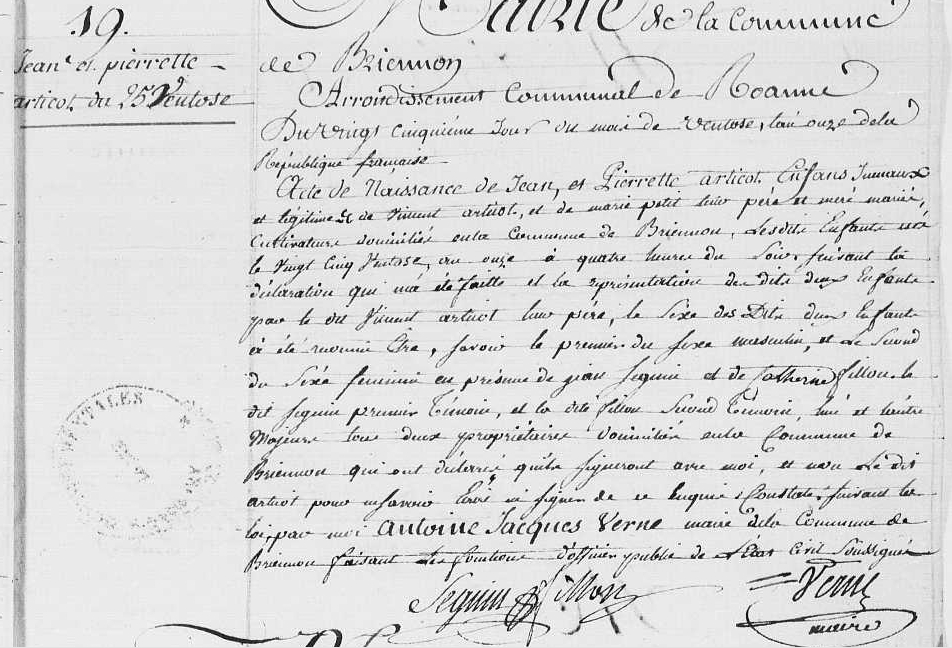 19.
Jean et pierrette
articot du 25 Ventose
Mairie de la Commune
de Briennon
Arrondissement Communal de Roanne
Du vingt cinquième Jour du mois de Ventose, l'an onze de la
République française
Acte de Naissance de Jean, et Pierrette articot Enfans Jumaux
et légitimes de Vincent articot, et de marie petit leur père et mere mariés,
Cultivateurs domiciliés en la Commune de Briennon, Lesdits Enfants nés
le Vingt Cinq Ventose, an onze à quatre heures du Soir, suivant la
déclaration qui ma été faitte et la représentation des dits deux Enfants
par le dit Vincent articot leur père, le Sexe des Dits deux Enfants
à été reconnu Etre, savoir le premier du sexe masculin, et Le Second
du Sexe feminin en présence de jean Seguin et de Catherine fillon. le
dit Seguin premier Témoin, et la dite fillon Second Témoin, lué et lautre
Majeurs tous deux propriétaires domiciliés en la Commune de
Briennon qui ont déclarés quils signeront avec moi, et non Le dit
articot pour ne savoir Ecrire ni signer de ce Enquis, Constaté suivant la
loi, par moi Antoine Jacques Verne maire de la Commune de
Briennon faisant les fonctions d'officier public de L'état Civil Soussigné
Seguin fillon Verne
maire